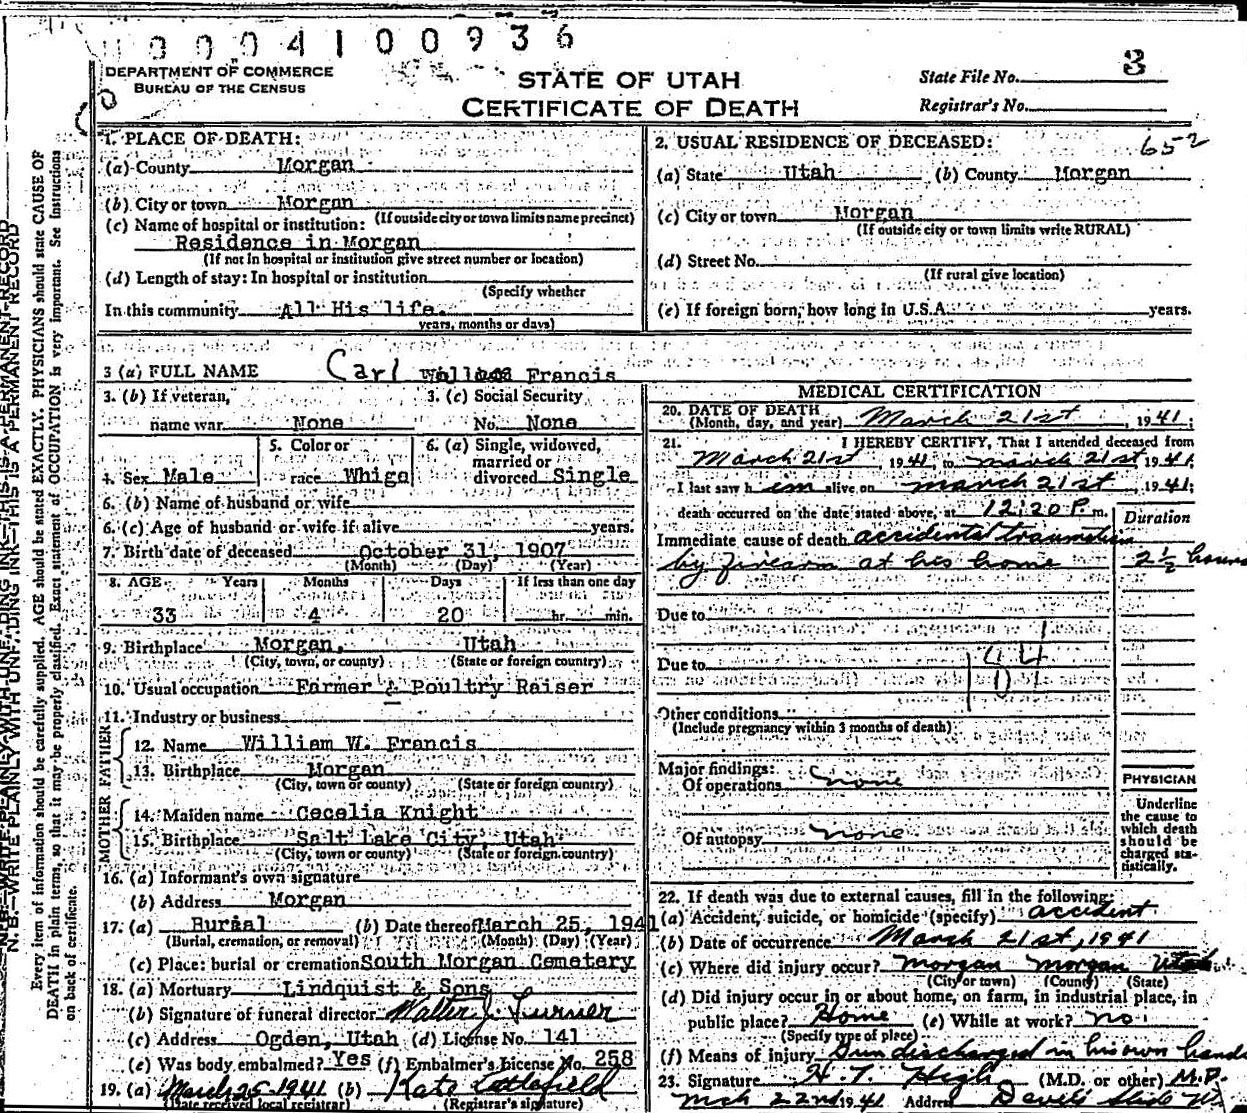 0004100936
DEPARTMENT OF COMMERCE
BUREAU OF THE CENSUS
STATE OF UTAH
CERTIFICATE OF DEATH
State File No. 3
Registrar's No.
1. PLACE OF DEATH:
(a) County Morgan
(b) City or town Morgan
(If outside city or town limits name precinct)
(c) Name of hospital or institution:
Residence in Morgan
(If not in hospital or institution give street number or location)
(d) Length of stay: In hospital or institution
(Specify whether
In this community All His life.
years, months or days)
2. USUAL RESIDENCE OF DECEASED: 652
(a) State Utah (b) County Morgan
(c) City or town Morgan
(If outside city or town limits write RURAL)
(d) Street No.
(If rural give location)
(e) If foreign born, how long in U.S.A. years.
3 (a) FULL NAME Carl Francis
3. (b) If veteran, 3. (c) Social Security
name war None No. None
4. Sex Male 5. Color or race Whige 6. (a) Single, widowed, married or divorced Single
6. (b) Name of husband or wife
6. (c) Age of husband or wife if alive years.
7. Birth date of deceased October 31, 1907
(Month) (Day) (Year)
8. AGE Years Months Days If less than one day
33 4 20 hr. min.
9. Birthplace Morgan, Utah
(City, town, or county) (State or foreign country)
10. Usual occupation Farmer & Poultry Raiser
11. Industry or business
FATHER
12. Name William W. Francis
13. Birthplace Morgan
(City, town or county) (State or foreign country)
MOTHER
14. Maiden name Cecelia Knight
15. Birthplace Salt Lake City, Utah
(City, town or county) (State or foreign country)
16. (a) Informant's own signature
(b) Address Morgan
17. (a) Burial (b) Date thereof March 25, 1941
(Burial, cremation, or removal) (Month) (Day) (Year)
(c) Place: burial or cremation South Morgan Cemetery
18. (a) Mortuary Lindquist & Sons
(b) Signature of funeral director Walter J. Turner
(c) Address Ogden, Utah (d) License No. 141
(e) Was body embalmed? Yes (f) Embalmer's License No. 258
19. (a) March 26 1941 (b) Kate Littlefield
(Date received local registrar) (Registrar's signature)
MEDICAL CERTIFICATION
20. DATE OF DEATH
(Month, day, and year) March 21st, 1941;
21. I HEREBY CERTIFY, That I attended deceased from
March 21st, 1941, to march 21st 1941;
I last saw him alive on march 21st, 1941;
death occurred on the date stated above, at 12:20 P. m.
Duration
Immediate cause of death accidental traumatism
by firearm at his home 2 1/2 hours
Due to
Due to
Other conditions
(Include pregnancy within 3 months of death)
Major findings:
Of operations none
Of autopsy none
PHYSICIAN
Underline
the cause to
which death
should be
charged sta-
tistically.
22. If death was due to external causes, fill in the following:
(a) Accident, suicide, or homicide (specify) accident
(b) Date of occurrence March 21st, 1941
(c) Where did injury occur? morgan morgan Utah
(City or town) (County) (State)
(d) Did injury occur in or about home, on farm, in industrial place, in
public place? Home (e) While at work? no
(Specify type of place)
(f) Means of injury Gun discharged in his own hands
23. Signature H. T. High (M.D. or other) M.D.
Mch 22nd 1941 Address Devils Slide Ut.
N. B.—WRITE PLAINLY WITH UNFADING INK—THIS IS A PERMANENT RECORD
Every item of information should be carefully supplied. AGE should be stated EXACTLY. PHYSICIANS should state CAUSE OF
DEATH in plain terms, so that it may be properly classified. Exact statement of OCCUPATION is very important. See Instructions
on back of certificate.